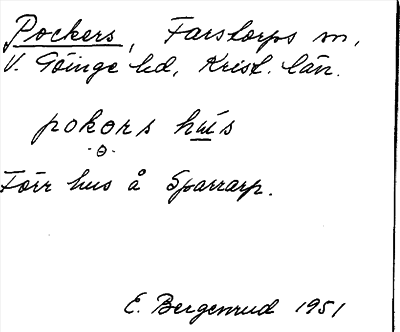 Pockers, Farstorps sn,
V. Göinge hd, Krist. län.
pokørs hus
·o·
Förr hus å Sparrarp.
E. Bergenrud 1951